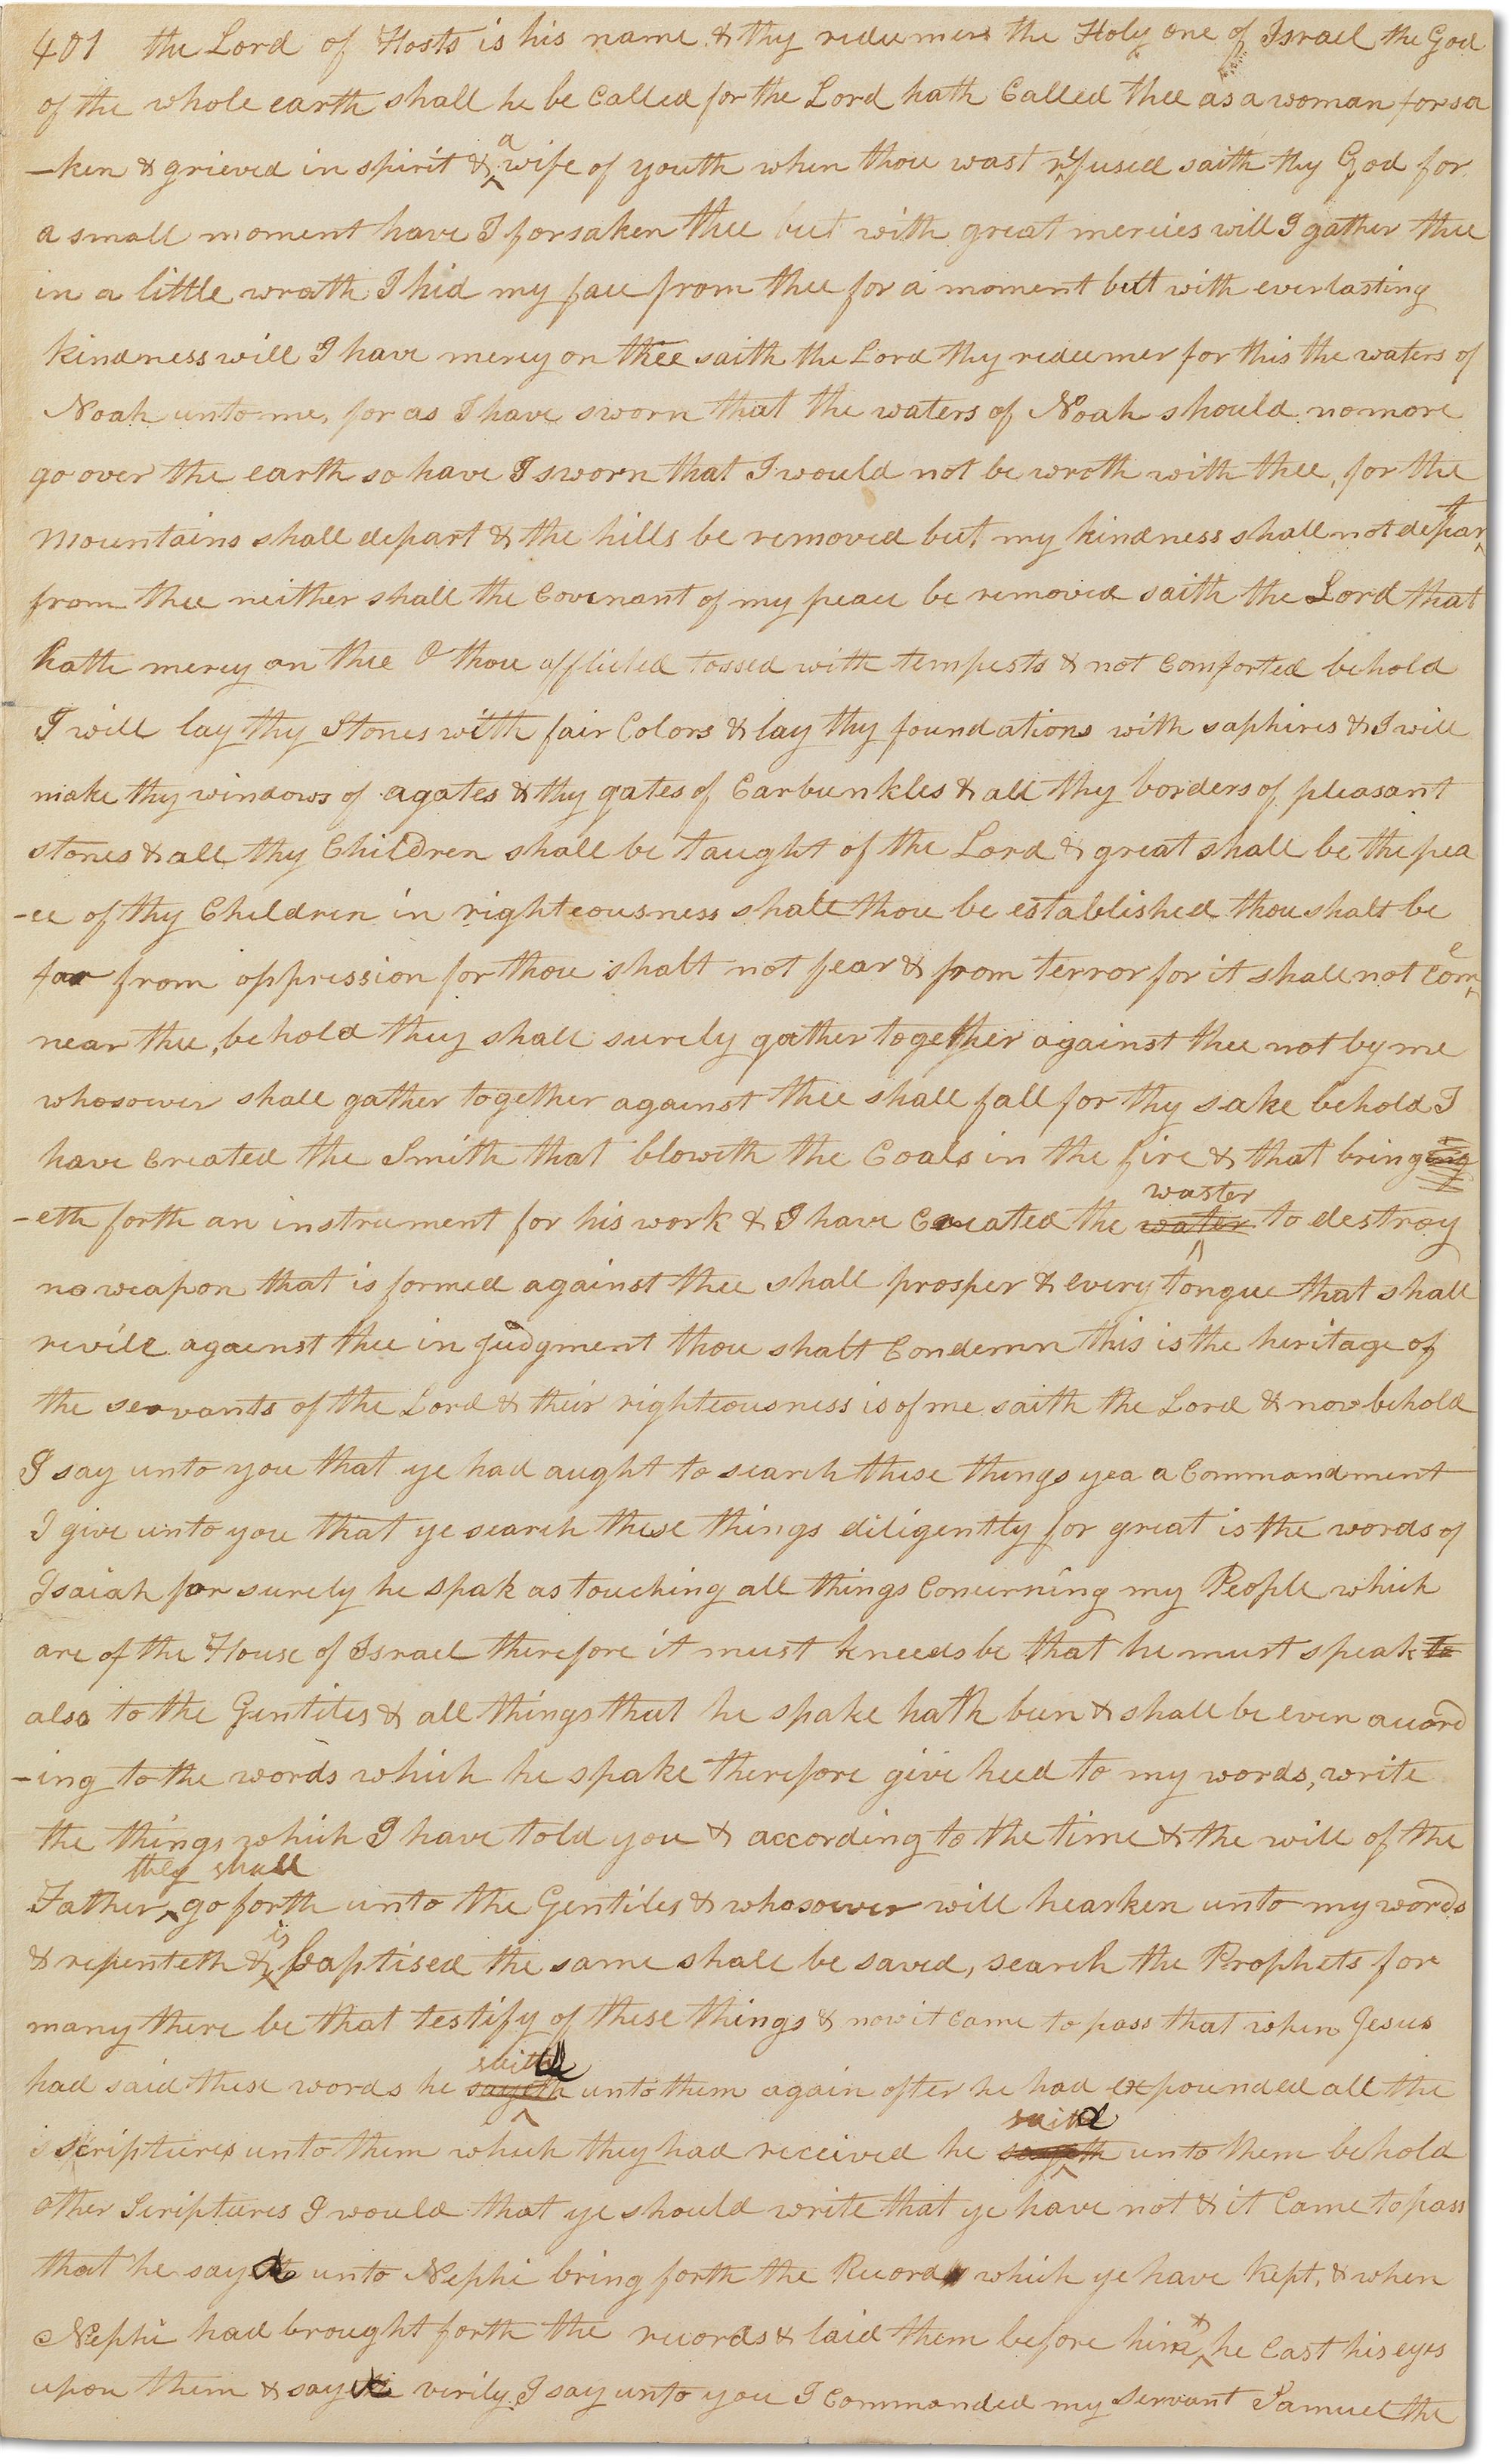 401 the Lord of Hosts is his name & thy redeemer the Holy one of Israel the God
of the whole earth shall he be Called for the Lord hath Called thee as a woman forsa
-ken & grieved in spirit & a wife of youth when thou wast refused saith thy God for
a small moment have I forsaken thee but with great mercies will I gather thee
in a little wrath I hid my face from thee for a moment but with everlasting
kindness will I have mercy on thee saith the Lord thy redeemer for this the waters of
Noah unto me, for as I have sworn that the waters of Noah should no more
go over the earth so have I sworn that I would not be wroth with thee, for the
mountains shall depart & the hills be removed but my kindness shall not depart
from thee neither shall the Covenant of my peace be removed saith the Lord that
hath mercy on thee O thou afflicted tossed with tempests & not Comforted behold
I will lay thy Stones with fair Colors & lay thy foundations with saphires & I will
make thy windows of agates & thy gates of Carbunkles & all thy borders of pleasant
stones & all thy Children shall be taught of the Lord & great shall be the pea
-ce of thy Children in righteousness shalt thou be established thou shalt be
far from oppression for thou shalt not fear & from terror for it shall not Come
near thee, behold they shall surely gather together against thee not by me
whosoever shall gather together against thee shall fall for thy sake behold I
have Created the Smith that bloweth the Coals in the fire & that bringing
-eth forth an instrument for his work & I have Created the water waster to destroy
no weapon that is formed against thee shall prosper & every tongue that shall
revile against thee in judgment thou shalt Condemn this is the heritage of
the servants of the Lord & their righteousness is of me saith the Lord & now behold
I say unto you that ye had aught to search these things yea a Commandment
I give unto you that ye search these things diligently for great is the words of
Isaiah for surely he spak as touching all things Concerning my People which
are of the House of Israel therefore it must kneeds be that he must speak to
also to the Gentiles & all things that he spake hath been & shall be even accord
-ing to the words which he spake therefore give heed to my words, write
the things which I have told you & according to the time & the will of the
Father they shall go forth unto the Gentiles & whosoever will hearken unto my words
& repenteth & is baptised the same shall be saved, search the Prophets for
many there be that testify of these things & now it Came to pass that when Jesus
had said these words he sayeth said unto them again after he had expounded all the
scriptures unto them which they had received he sayeth said unto them behold
other Scriptures I would that ye should write that ye have not & it Came to pass
that he sayd unto Nephi bring forth the Record which ye have kept, & when
Nephi had brought forth the records & laid them before him & he Cast his eyes
upon them & sayd verily I say unto you I Commanded my Servant Samuel the